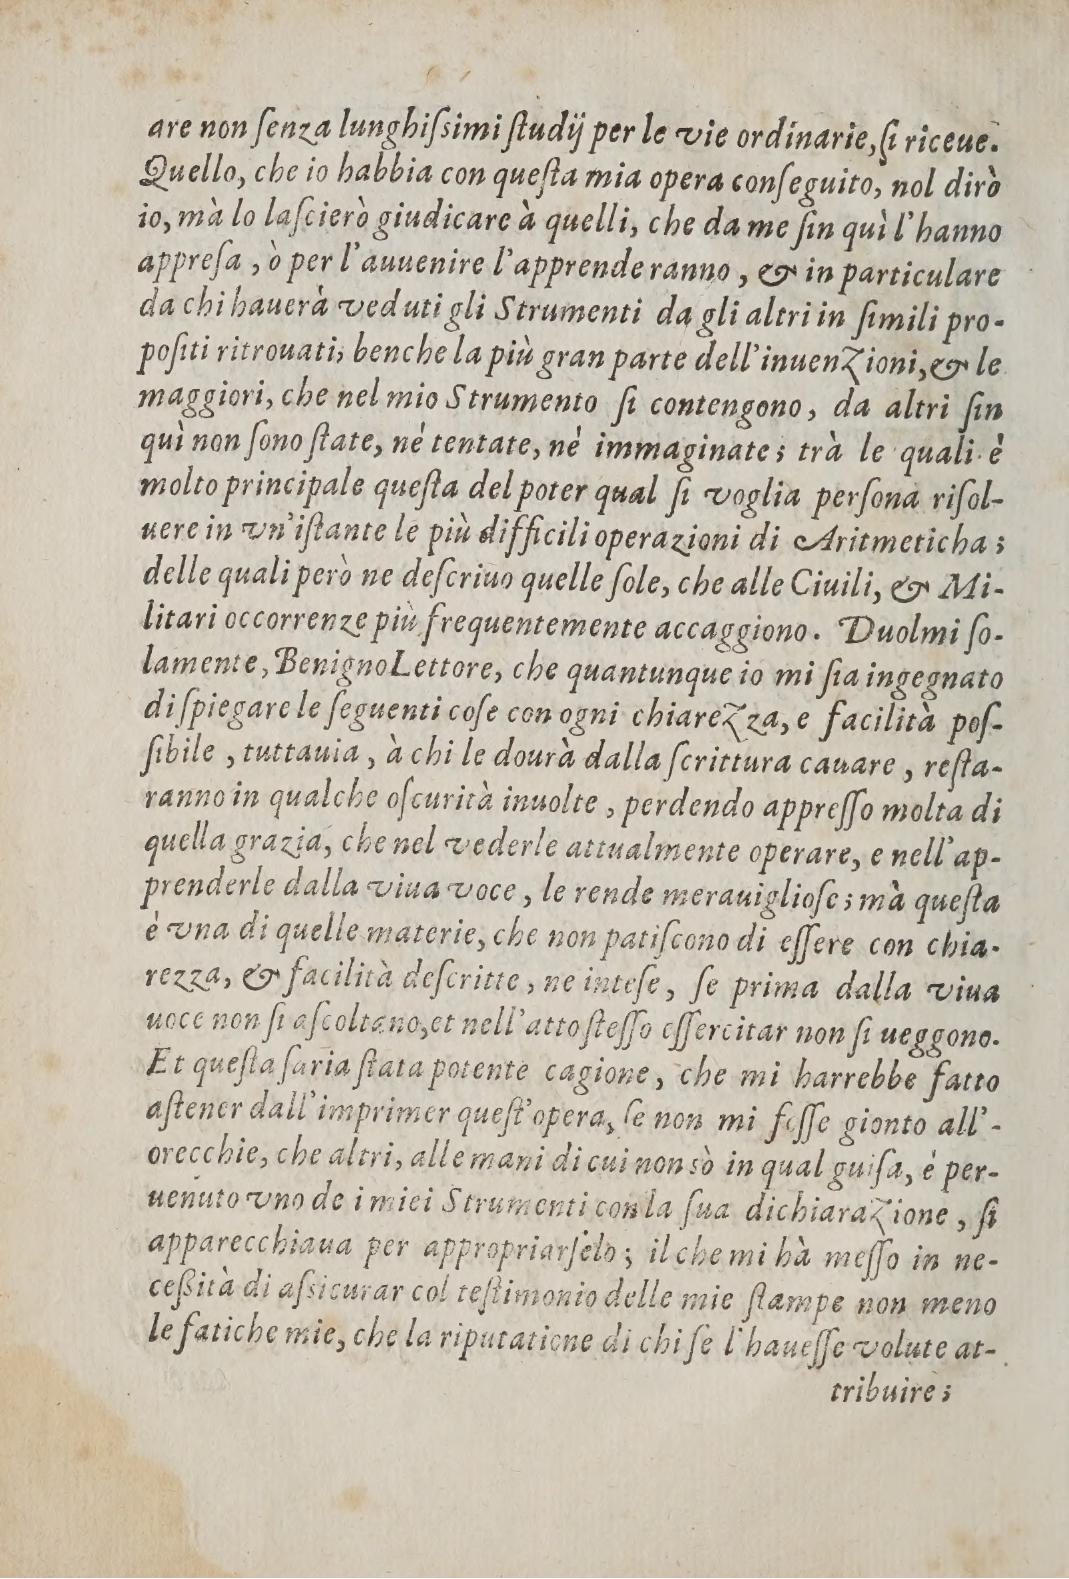 are non ſenza lunghiſsimi ſtudij per le vie ordinarie, ſi riceue.
Quello, che io habbia con queſta mia opera conſeguito, nol dirò
io, mà lo laſcierò giudicare à quelli, che da me ſin quì l'hanno
appreſa, ò per l'auuenire l'apprenderanno, & in particulare
da chi hauerà veduti gli Strumenti da gli altri in ſimili pro-
poſiti ritrouati; benche la più gran parte dell'inuenzioni, & le
maggiori, che nel mio Strumento ſi contengono, da altri ſin
quì non ſono ſtate, nè tentate, nè immaginate; trà le quali è
molto principale queſta del poter qual ſi voglia perſona riſol-
uere in vn'iſtante le più difficili operazioni di Aritmeticha;
delle quali però ne deſcriuo quelle ſole, che alle Ciuili, & Mi-
litari occorrenze più frequentemente accaggiono. Duolmi ſo-
lamente, Benigno Lettore, che quantunque io mi ſia ingegnato
di ſpiegare le ſeguenti coſe con ogni chiarezza, e facilità poſ-
ſibile, tuttauia, à chi le dourà dalla ſcrittura cauare, reſta-
ranno in qualche oſcurità inuolte, perdendo appreſſo molta di
quella grazia, che nel vederle attualmente operare, e nell'ap-
prenderle dalla viua voce, le rende merauiglioſe; mà queſta
è vna di quelle materie, che non patiſcono di eſſere con chia-
rezza, & facilità deſcritte, ne inteſe, ſe prima dalla viua
uoce non ſi aſcoltano, et nell'atto ſteſſo eſſercitar non ſi ueggono.
Et queſta ſaria ſtata potente cagione, che mi harrebbe fatto
aſtener dall'imprimer queſt'opera, ſe non mi foſſe gionto all'-
orecchie, che altri, alle mani di cui non sò in qual guiſa, è per-
uenuto vno de i miei Strumenti con la ſua dichiarazione, ſi
apparecchiaua per appropriarſelo; il che mi hà meſſo in ne-
ceßità di aſsicurar col teſtimonio delle mie ſtampe non meno
le fatiche mie, che la riputatione di chi ſe l'haueſſe volute at-
tribuire;